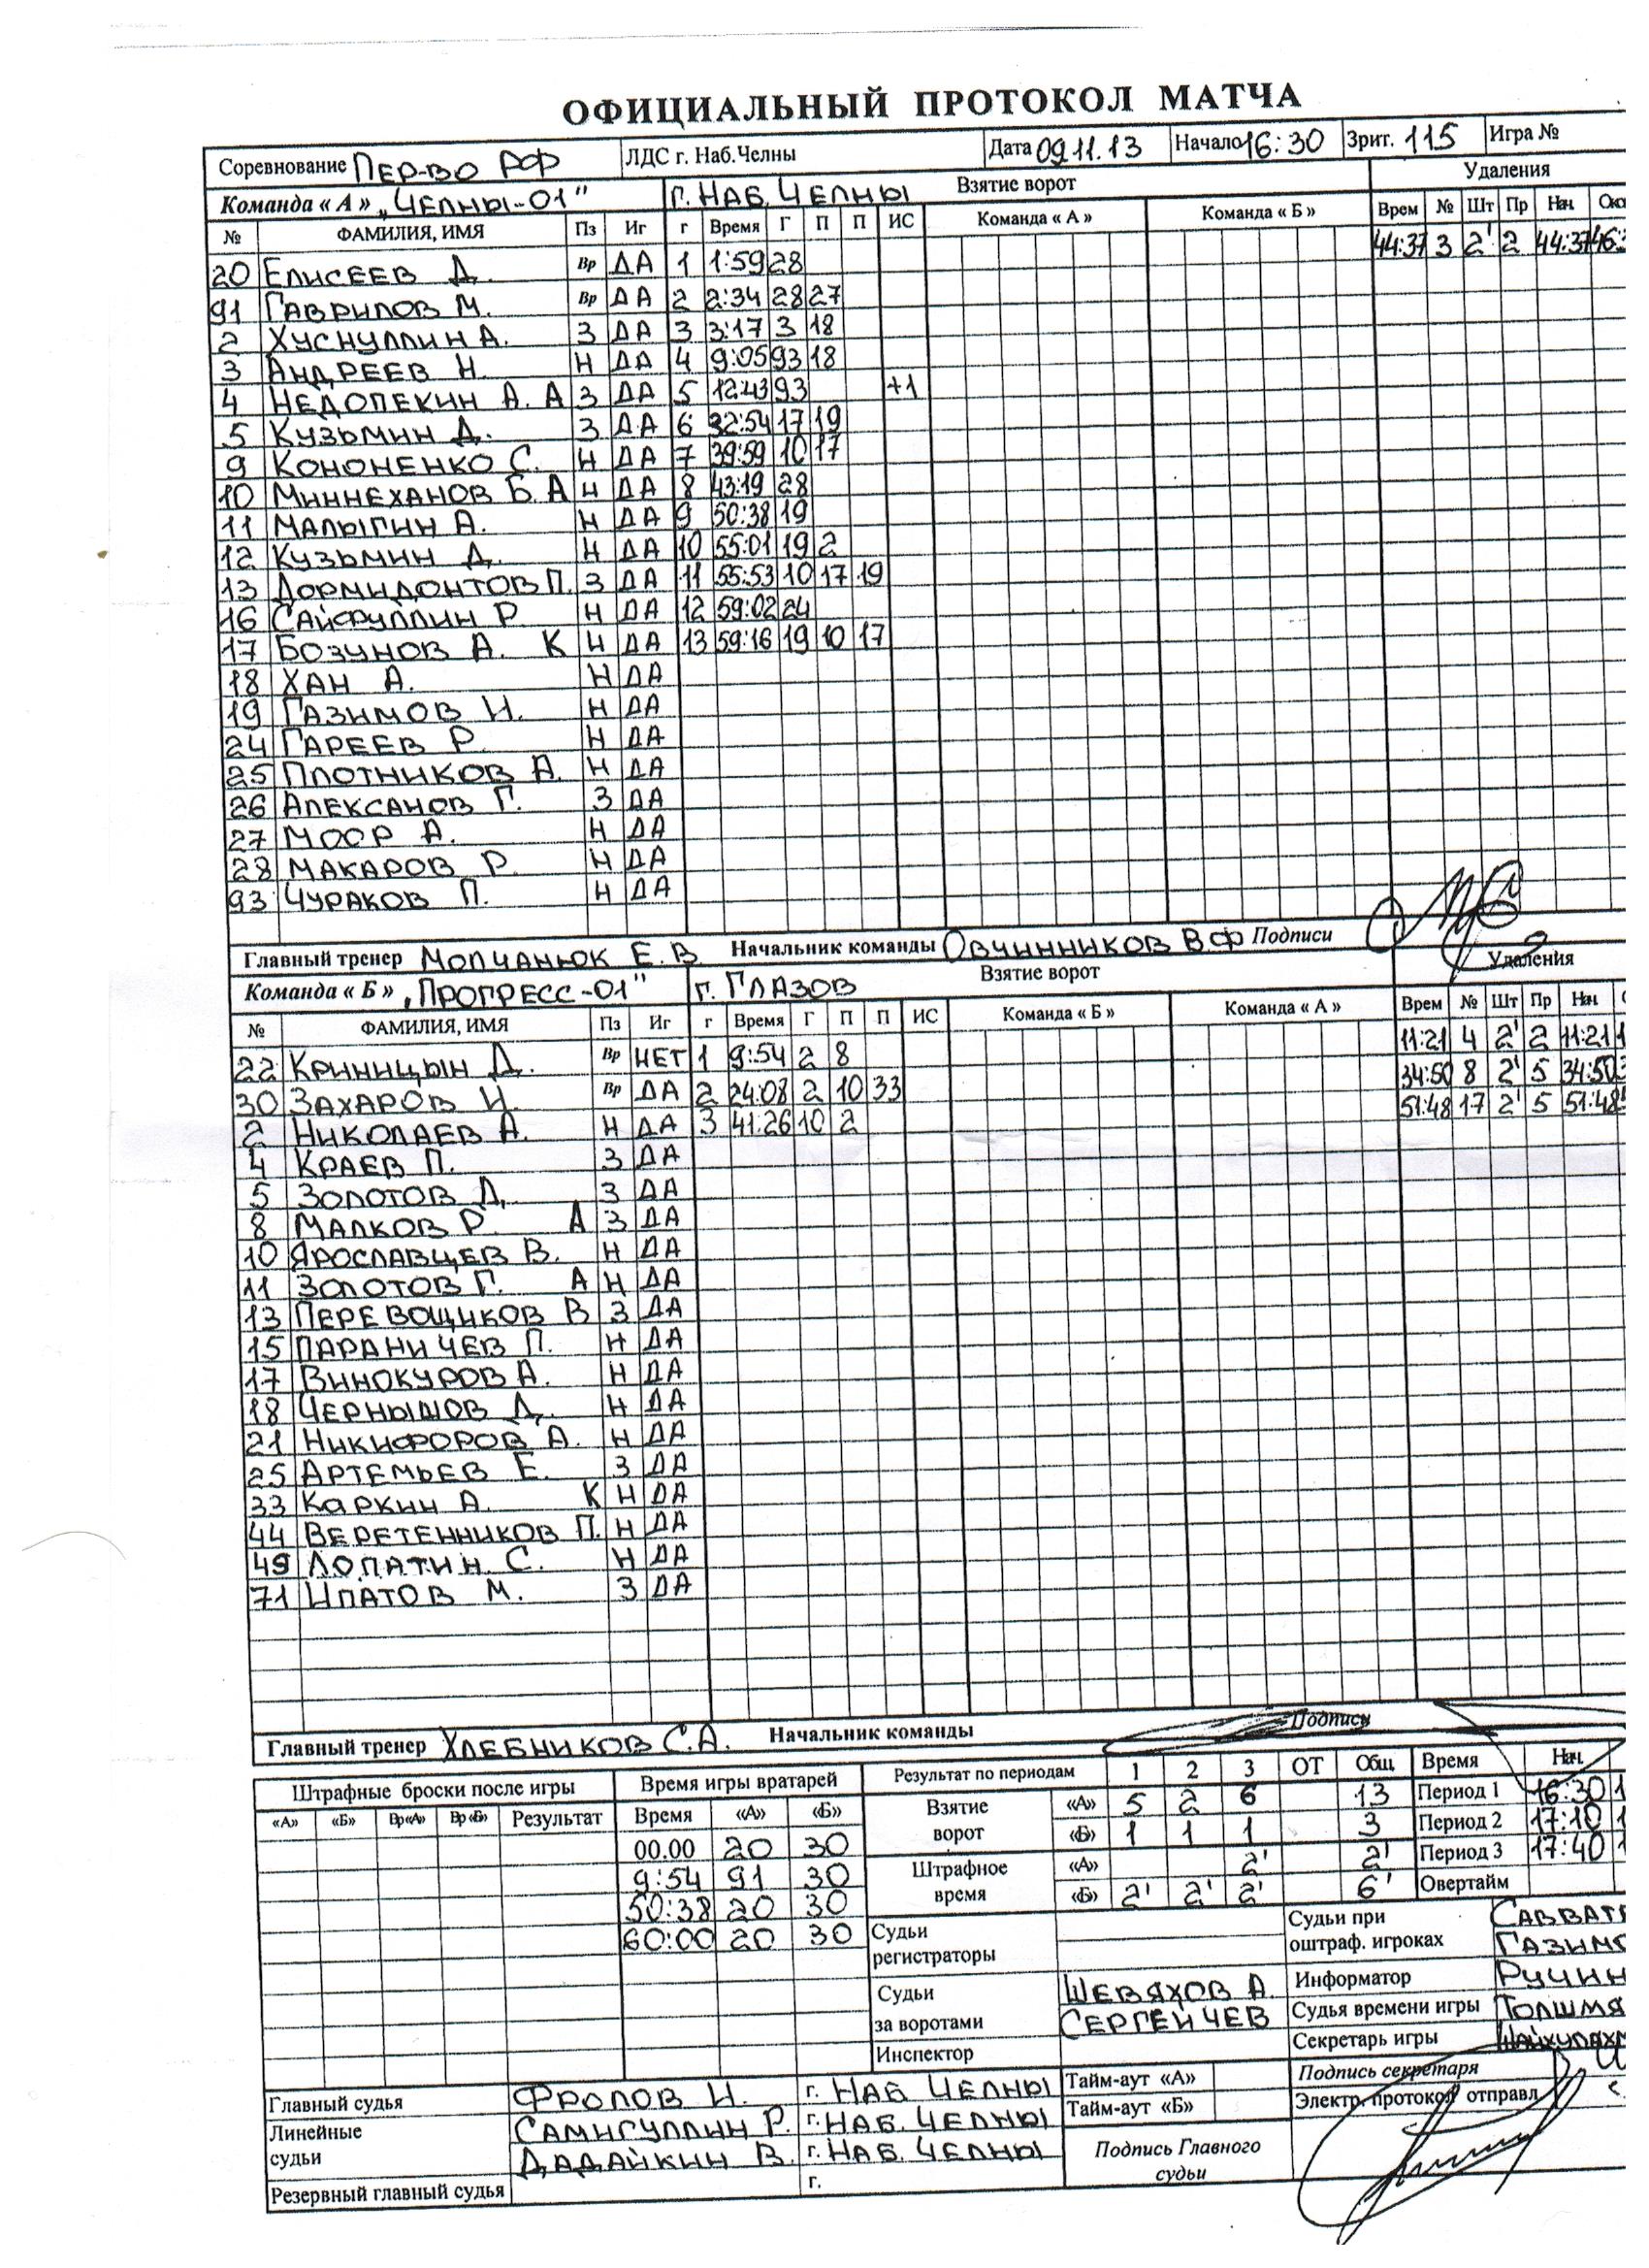 ОФИЦИАЛЬНЫЙ ПРОТОКОЛ МАТЧА
Соревнование Пер-во РФ ЛДС г. Наб.Челны Дата 09.11.13 Начало 16:30 Зрит. 115 Игра №
Команда « А » „Челны-01" г. Наб. Челны Взятие ворот Удаления
№ ФАМИЛИЯ, ИМЯ Пз Иг г Время Г П П ИС Команда « А » Команда « Б » Врем № Шт Пр Нач.
20 Елисеев Д. Вр ДА 1 1:59 28 44:37 3 2' 2 44:37
91 Гаврилов М. Вр ДА 2 2:34 28 27
2 Хуснуллин А. З ДА 3 3:17 3 18
3 Андреев И. Н ДА 4 9:05 93 18
4 Недопекин А. А З ДА 5 12:43 93 +1
5 Кузьмин Д. З ДА 6 32:54 17 19
9 Кононенко С. Н ДА 7 39:59 10 17
10 Миннеханов Б. А Н ДА 8 43:19 28
11 Малыгин А. Н ДА 9 50:38 19
12 Кузьмин Д. Н ДА 10 55:01 19 2
13 Дормидонтов П. З ДА 11 55:53 10 17 19
16 Сайфуллин Р. Н ДА 12 59:02 24
17 Бозунов А. К Н ДА 13 59:16 19 10 17
18 Хан А. Н ДА
19 Газимов И. Н ДА
24 Гареев Р. Н ДА
25 Плотников А. Н ДА
26 Алексанов Г. З ДА
27 Моор А. Н ДА
28 Макаров Р. Н ДА
93 Чураков П. Н ДА
Главный тренер Молчанюк Е.В. Начальник команды Овчинников В.Ф Подписи
Команда « Б » „Прогресс-01" г. Глазов Взятие ворот Удаления
№ ФАМИЛИЯ, ИМЯ Пз Иг г Время Г П П ИС Команда « Б » Команда « А » Врем № Шт Пр Нач.
22 Криницын Д. Вр НЕТ 1 9:54 2 8 11:21 4 2' 2 11:21
30 Захаров И. Вр ДА 2 24:08 2 10 33 34:50 8 2' 5 34:50
2 Николаев А. Н ДА 3 41:26 10 2 51:48 17 2' 5 51:48
4 Краев П. З ДА
5 Золотов Д. З ДА
8 Малков Р. А З ДА
10 Ярославцев В. Н ДА
11 Золотов Г. А Н ДА
13 Перевощиков В З ДА
15 Параничев П. Н ДА
17 Винокуров А. Н ДА
18 Чернышов Д. Н ДА
21 Никифоров А. Н ДА
25 Артемьев Е. З ДА
33 Каркин А. К Н ДА
44 Веретенников П. Н ДА
49 Лопатин С. Н ДА
71 Ипатов М. З ДА
Главный тренер Хлебников С.А. Начальник команды Подписи
Штрафные броски после игры Время игры вратарей Результат по периодам 1 2 3 ОТ Общ. Время Нач.
«А» «Б» Вр«А» Вр«Б» Результат Время «А» «Б» Взятие ворот «А» 5 2 6 13 Период 1 16:30
00.00 20 30 «Б» 1 1 1 3 Период 2 17:10
9:54 91 30 Штрафное время «А» 2' 2' Период 3 17:40
50:38 20 30 «Б» 2' 2' 2' 6' Овертайм
60:00 20 30 Судьи регистраторы Судьи при оштраф. игроках
Судьи за воротами Шевяхов А. Информатор
Сергеичев Судья времени игры
Инспектор Секретарь игры
Главный судья Фролов И. г. Наб. Челны Тайм-аут «А» Подпись секретаря
Линейные судьи Самигуллин Р. г. Наб. Челны Тайм-аут «Б» Электр. протокол отправл
Дадайкин В. г. Наб. Челны Подпись Главного судьи
Резервный главный судья г.